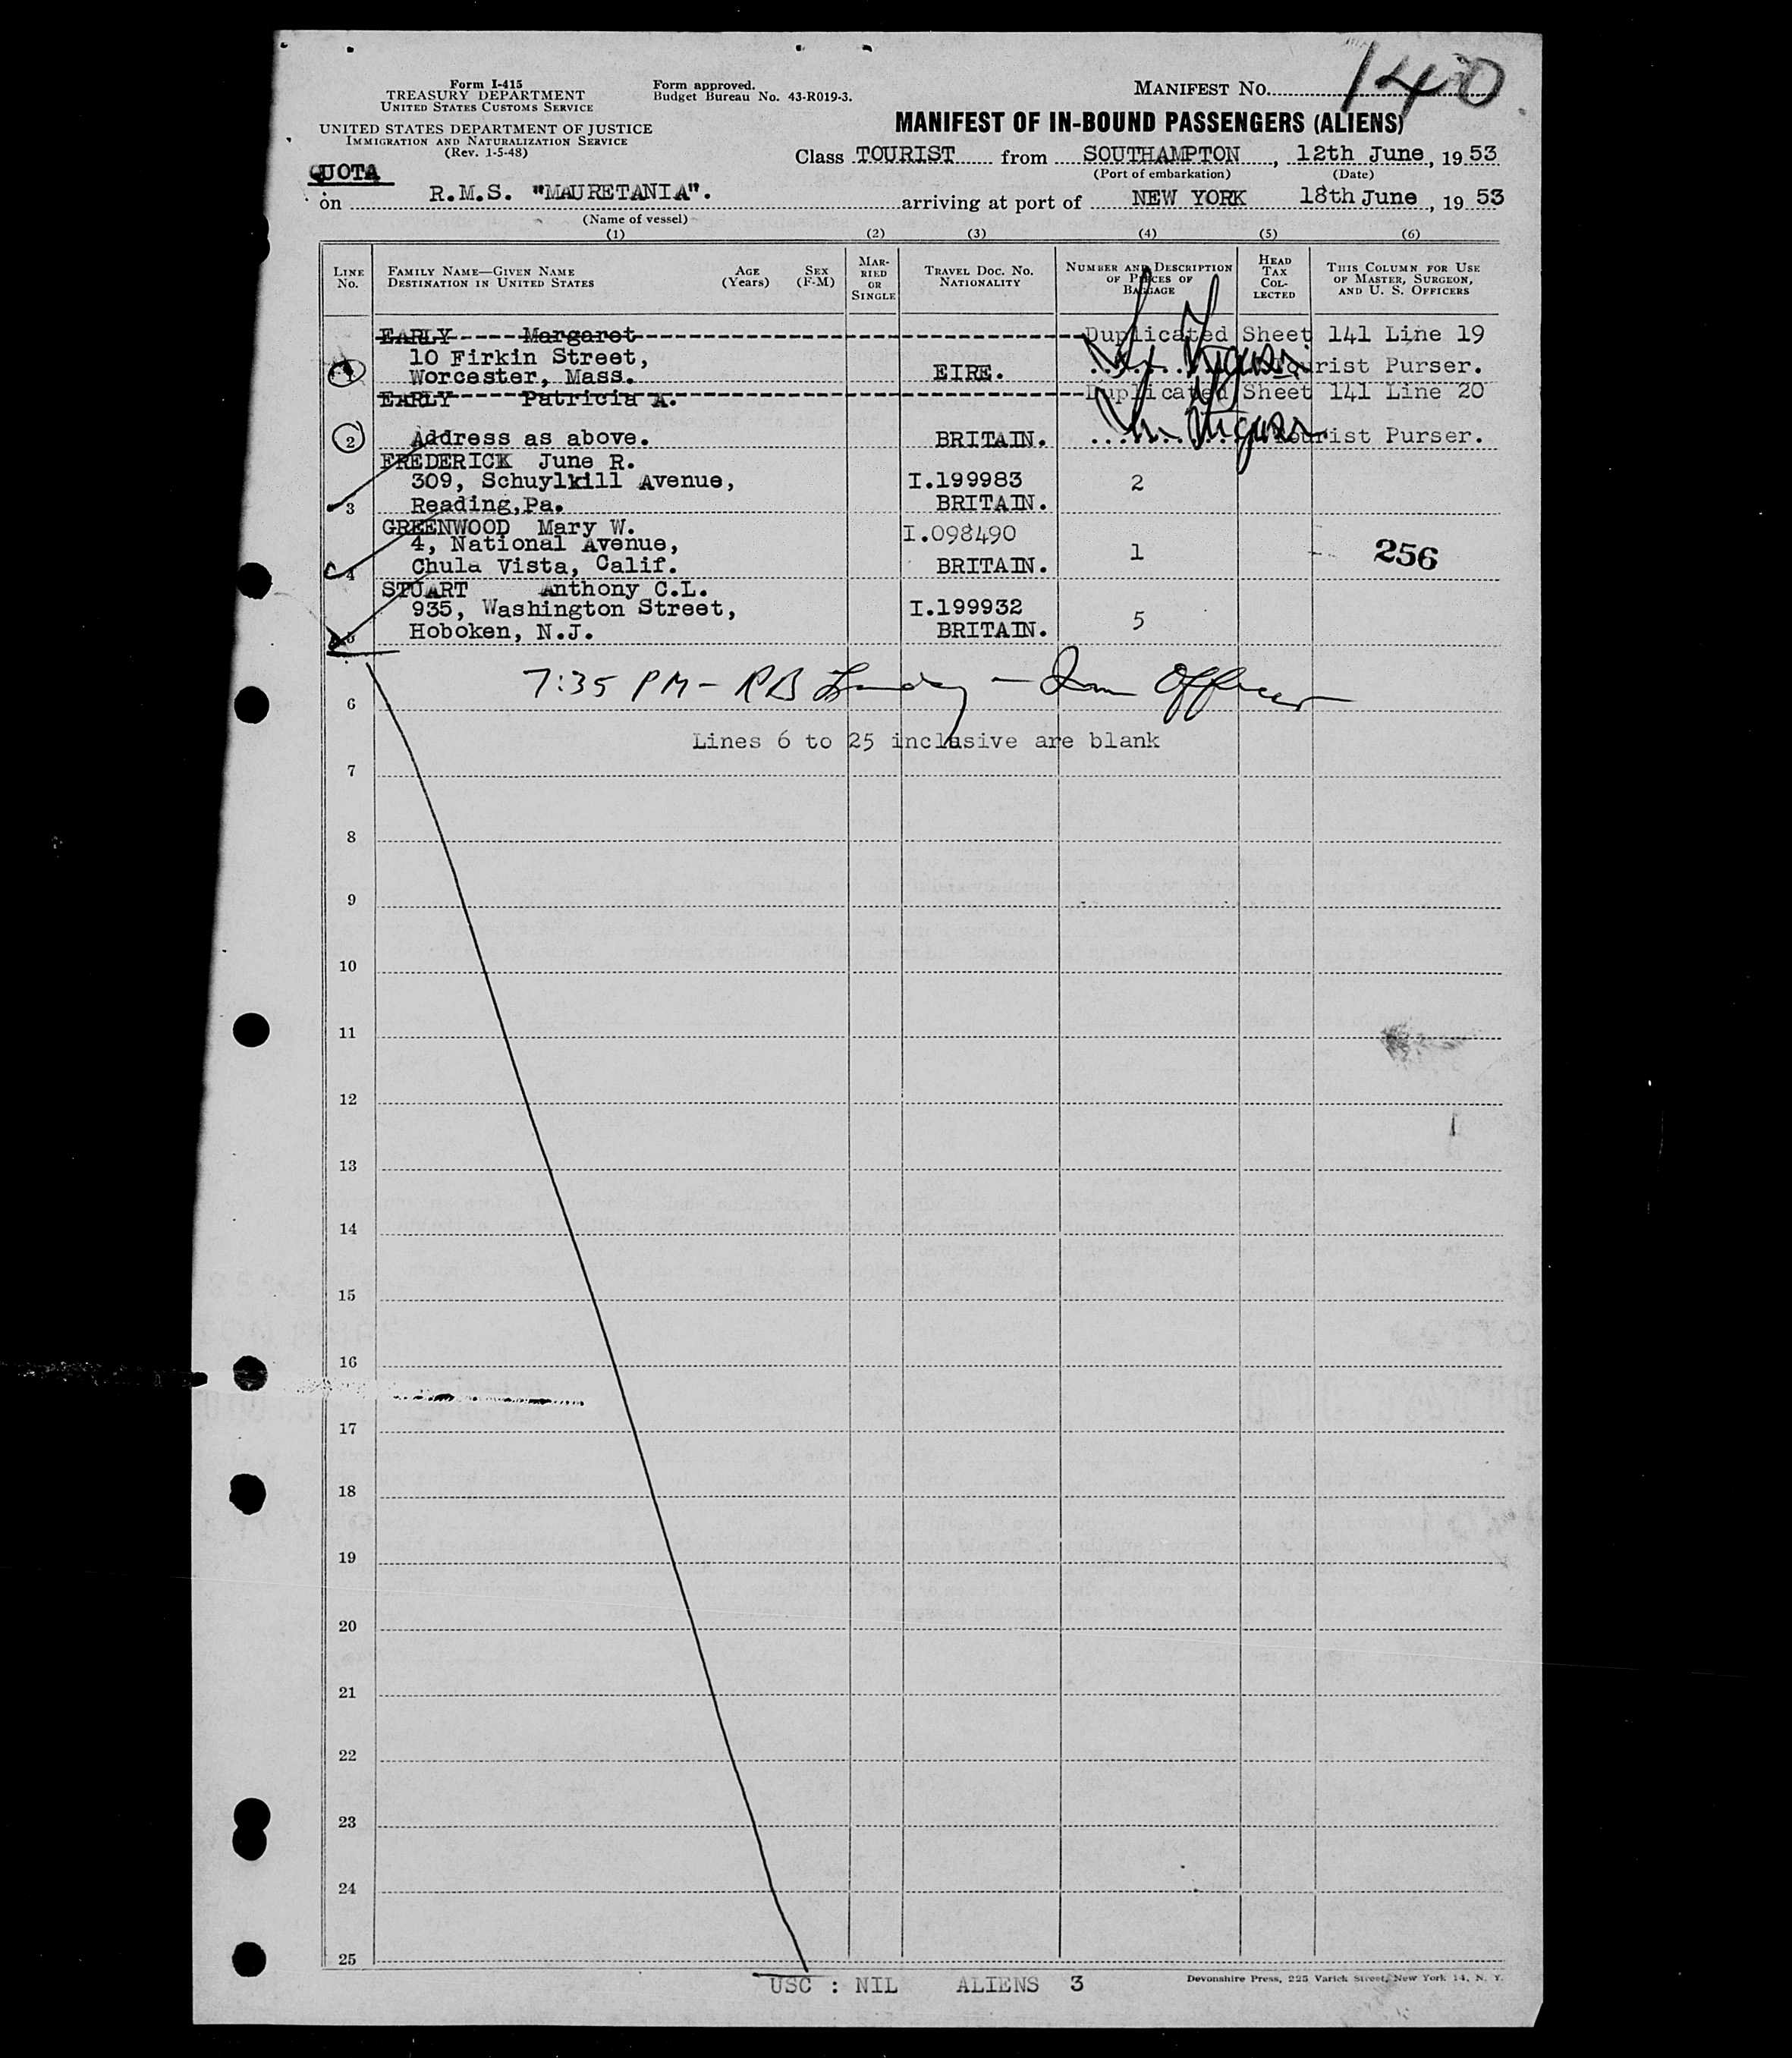 Form I-415
TREASURY DEPARTMENT
UNITED STATES CUSTOMS SERVICE
UNITED STATES DEPARTMENT OF JUSTICE
IMMIGRATION AND NATURALIZATION SERVICE
(Rev. 1-5-48)
Form approved.
Budget Bureau No. 43-R019-3.
MANIFEST NO. 140
MANIFEST OF IN-BOUND PASSENGERS (ALIENS)
Class TOURIST from SOUTHAMPTON, 12th June, 1953
(Port of embarkation) (Date)
QUOTA
on R.M.S. "MAURETANIA". arriving at port of NEW YORK 18th June, 1953
(Name of vessel)
(1) (2) (3) (4) (5) (6)
LINE NO.
FAMILY NAME—GIVEN NAME
DESTINATION IN UNITED STATES
AGE (Years)
SEX (F-M)
MARRIED OR SINGLE
TRAVEL DOC. NO. NATIONALITY
NUMBER AND DESCRIPTION OF PIECES OF BAGGAGE
HEAD TAX COLLECTED
THIS COLUMN FOR USE OF MASTER, SURGEON, AND U. S. OFFICERS
EARLY Margaret Duplicated Sheet 141 Line 19
10 Firkin Street,
1 Worcester, Mass. EIRE. Tourist Purser.
EARLY Patricia A. Duplicated Sheet 141 Line 20
2 Address as above. BRITAIN. Tourist Purser.
FREDERICK June R.
309, Schuylkill Avenue, I.199983 2
3 Reading,Pa. BRITAIN.
GREENWOOD Mary W. I.098490
4, National Avenue, 1 256
4 Chula Vista, Calif. BRITAIN.
STUART Anthony C.L.
935, Washington Street, I.199932 5
5 Hoboken, N.J. BRITAIN.
7:35 PM - RB - Imm Officer
6
Lines 6 to 25 inclusive are blank
7
8
9
10
11
12
13
14
15
16
17
18
19
20
21
22
23
24
25
USC : NIL ALIENS 3
Devonshire Press, 225 Varick Street, New York 14, N. Y.